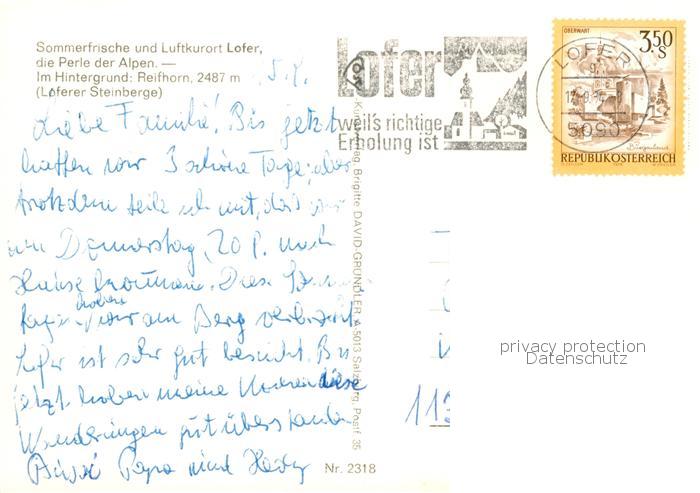 Sommerfrische und Luftkurort Lofer,
die Perle der Alpen. —
Im Hintergrund: Reifhorn, 2487 m
(Loferer Steinberge)
Lofer
weil's richtige
Erholung ist
OBERWART
3.50 S
LOFER
5090
Burgenland
REPUBLIK ÖSTERREICH
Liebe Familie! Bis jetzt
hatten wir 3 schöne Tage, aber
trotzdem teile ich mit, daß wir
am Donnerstag, 20. P. nach
Hause kommen. Diese
haben
wir am Berg verbracht.
Lofer ist sehr gut besucht. Bis
jetzt haben meine diese
Wanderungen gut überstanden
Papa und
Brigitte DAVID-GRUNDLER, A-5013 Salzburg, Postf. 35
Nr. 2318
privacy protection
Datenschutz